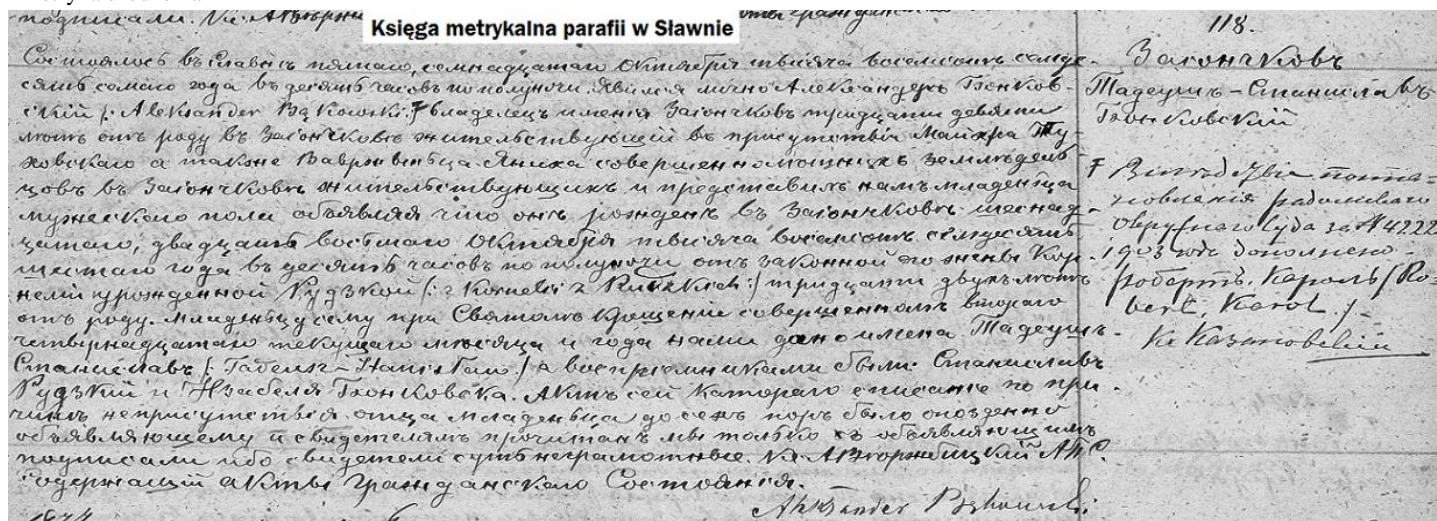 подписали. Кс.
Księga metrykalna parafii w Sławnie
118.
Загончковъ
Тадеушъ-Станиславъ
Бонковскій
Состоялось въ Славнѣ пятаго, семнадцатаго Октября тысяча восемьсотъ семьде-
сятъ седьмаго года въ десять часовъ по полуночи. Явился лично Александеръ Бонков-
скій /: Aleksander Bąkowski :/ ⴕ владелецъ имѣнія Загончковъ тридцати девяти
лѣтъ отъ роду въ Загончковѣ жительствующій въ присутствіи Маіхра Ту-
ховскаго а также Ваврженьца Яниха совершеннолѣтнихъ земледель-
цовъ въ Загончковѣ жительствующихъ и представилъ намъ младенца
мужескаго пола объявляя что онъ рожденъ въ Загончковѣ шеснад-
цатаго, двадцать восьмаго Октября тысяча восемьсотъ семьдесятъ
шестаго года въ десять часовъ по полуночи отъ законной его жены Кор-
неліи урожденной Рудзкой /: z Kornelii z Rudzkich :/ тридцати двухъ лѣтъ
отъ роду. Младенцу сему при Святомъ Крещеніе совершенномъ втораго
четырнадцатаго текущаго мѣсяца и года нами дано имена Тадеушъ-
Станиславъ /: Tadeusz-Stanisław :/ а воспріемниками были: Станиславъ
Рудзкій и Изабеля Бонковска. Актъ сей катораго списаніе по при-
чинѣ неприсутствія отца младенца до сехъ поръ было опоздено
объявляющему и свидетелямъ прочитанъ мы только съ объявляющимъ
подписали ибо свидетели суть неграмотные. Кс. А. Згоржельскій А.П.С.
Содержащій акты Гражданскаго Состоянія.
Aleksander Bąkowski
ⴕ Вслѣдствіе поста-
новленія радомскаго
Окружнаго Суда за № 4222
1903 года дополнено
робертъ, Кароль /Ro-
bert, Karol./-
Кс Казимовскій